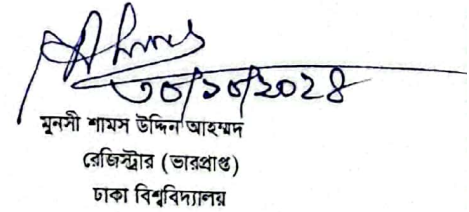 ৩০/১০/২০২৪
মুনসী শামস উদ্দিন আহম্মদ
রেজিস্ট্রার (ভারপ্রাপ্ত)
ঢাকা বিশ্ববিদ্যালয়